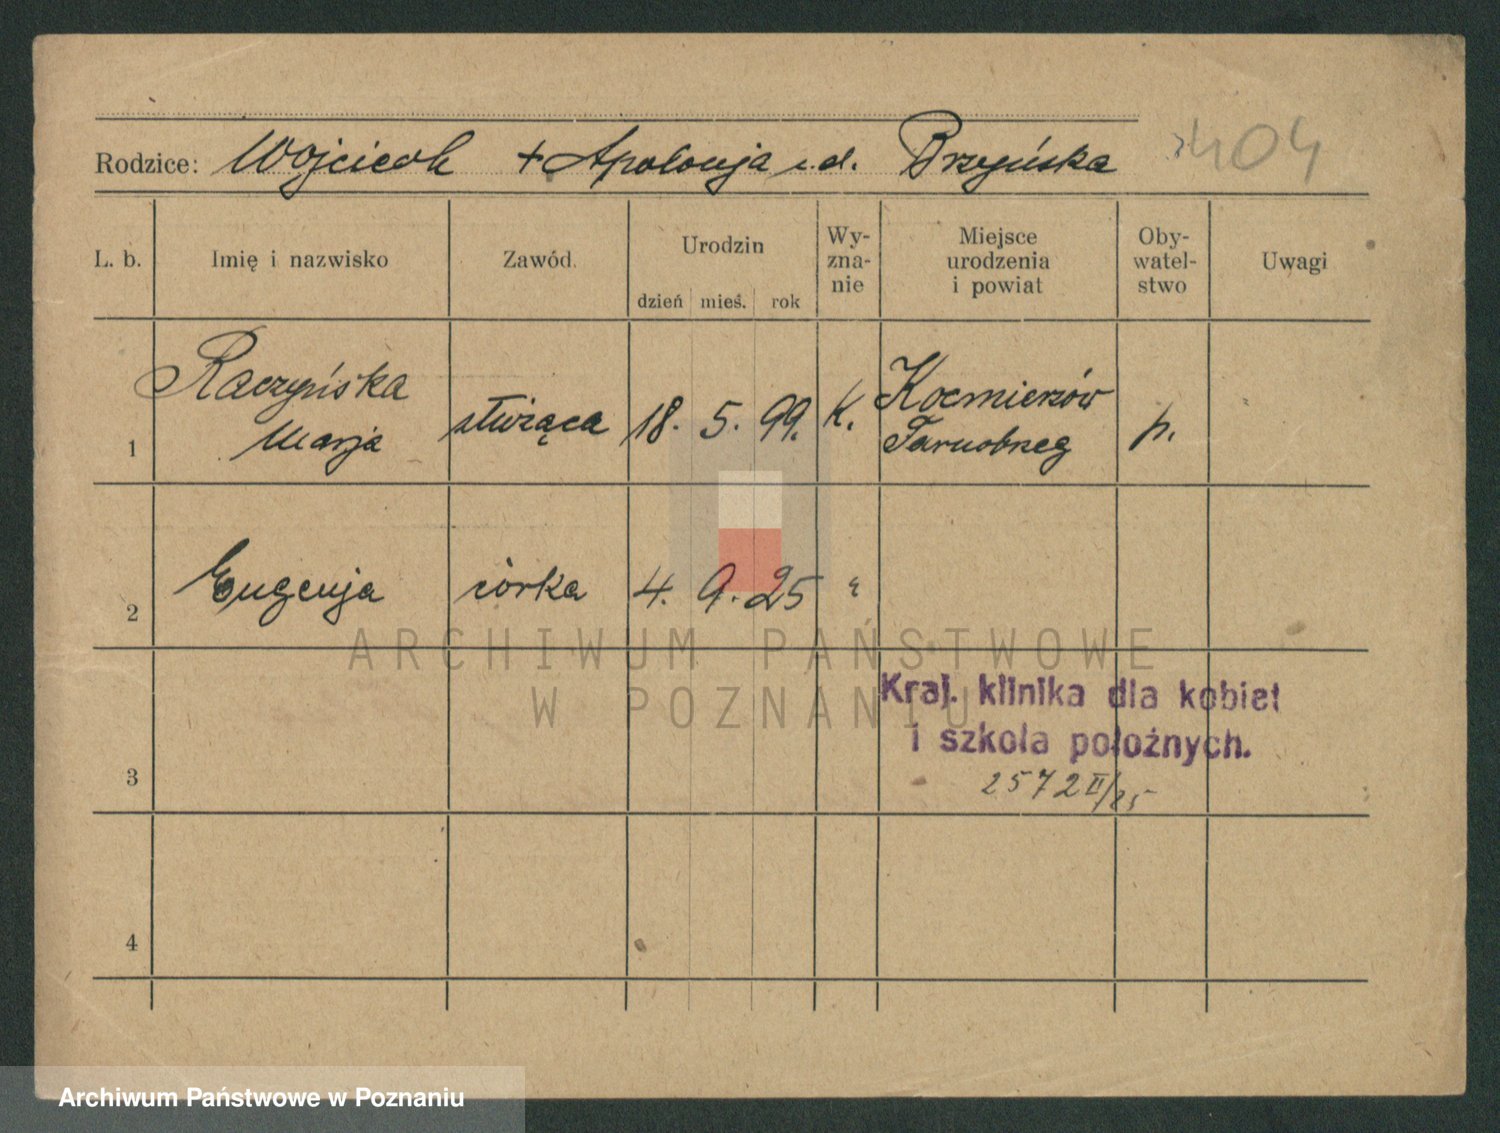 Rodzice: Wojciech + Apolonja z.d. Brzyńska
404
L. b. Imię i nazwisko Zawód. Urodzin dzień mieś. rok Wy-zna-nie Miejsce urodzenia i powiat Oby-watel-stwo Uwagi
1 Raczyńska Marja służąca 18. 5. 99. K. Kocmierzów Tarnobrzeg p.
2 Eugenja córka 4. 9. 25 "
ARCHIWUM PAŃSTWOWE
W POZNANIU
Kraj. klinika dla kobiet
i szkola położnych.
3 2572 II/25
4
Archiwum Państwowe w Poznaniu